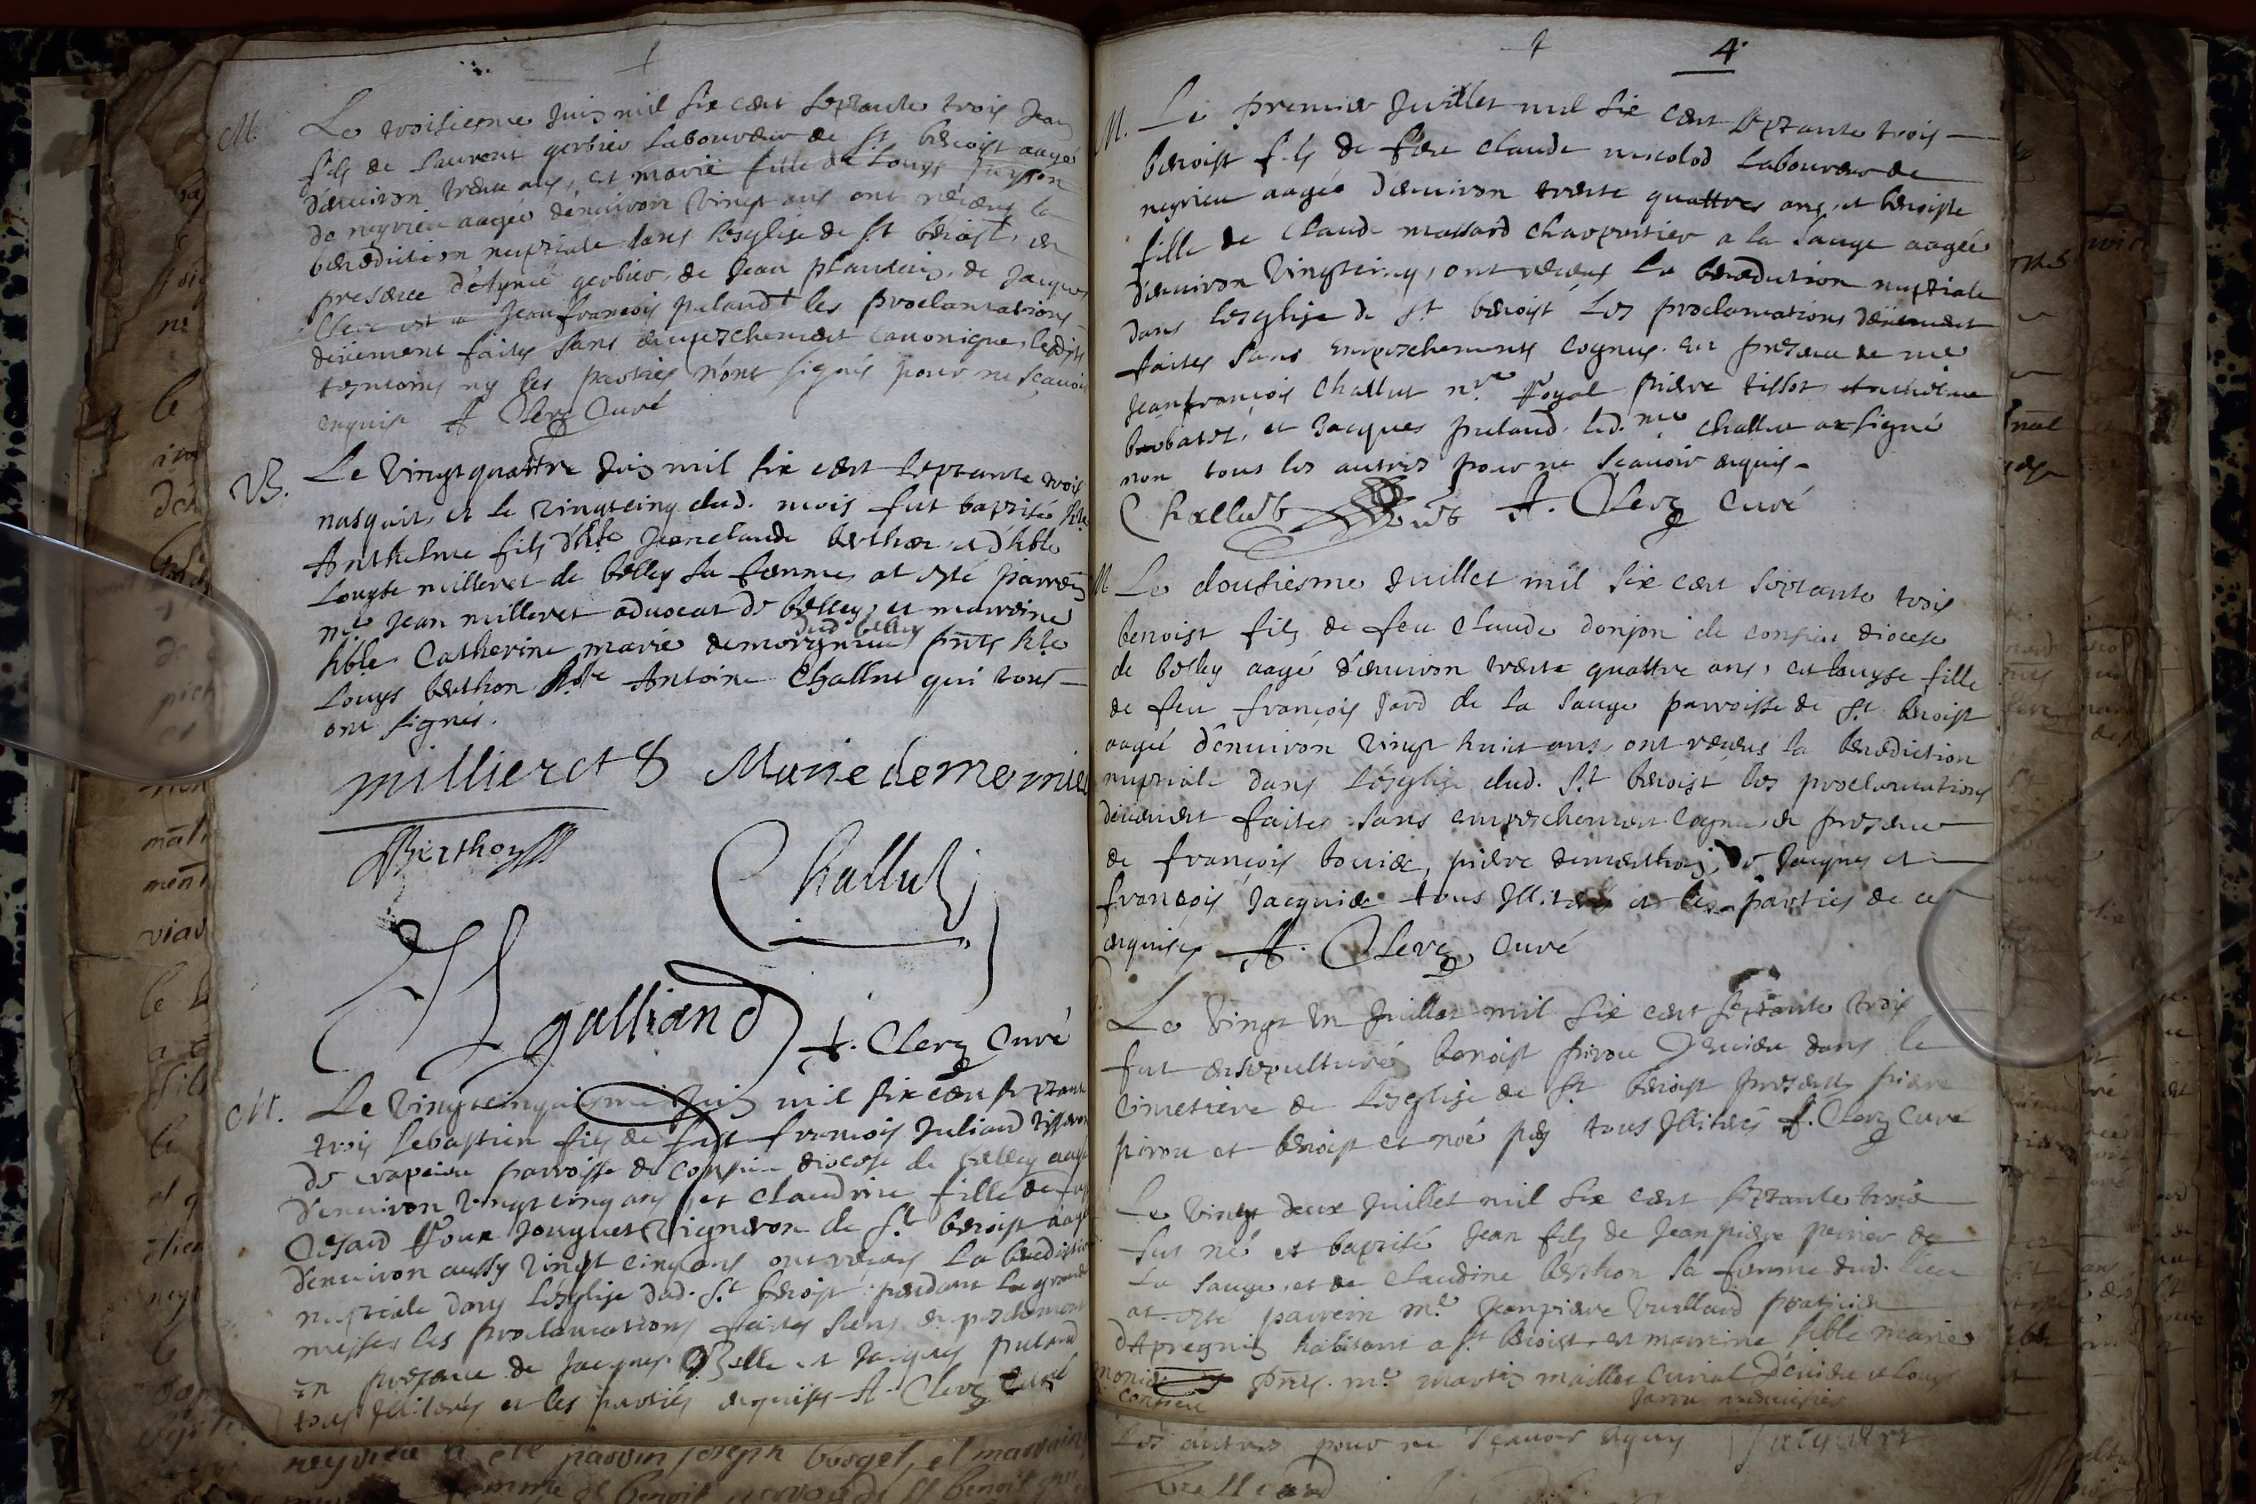 M. Le troisiesme juin mil six cent septante trois Jean
fils de Laurent gerbier laboureur de St benoist aagé
d'environ trente ans, et marie fille de Louys
de neyrieu aagée d'environ vingt ans ont receus la
benediction nuptiale dans l'esglise de St benoist, en
presence d'Aymé gerbier, de Jean plantin, de Jacques
Clerc et a Jean françois pulaud les proclamations
deüement faites sans empeschement canonique, lesdits
tesmoins ny les parties n'ont signés pour ne sçavoir
enquis A Clerc Curé
B. Le vingt quattre juin mil six cent septante trois
nasquit, et le vingtcinq dud. mois fut baptisé
Anthelme fils d'hble Jeanclaude berthon et d'hble
Louyse milleret de belley sa femme, at esté parrein
me Jean milleret advocat de belley, et marreine
dud belley
hble Catherine marie demorgnieu pnts hble
Louys berthon Antoine Challut qui tous
ont signés.
millieret Marie de
Berthon
Challut
galliand
A. Clerc Curé
M. Le vingtcinquiesme juin mil six cent septante
trois Sebastien fils de fust francois Juliand
de crapeou parroisse de Conzieu diocese de belley aagé
d'environ vingtcinq ans, et Claudine fille de
Cesard vigneron de St benoist aagée
d'environ aussy vingt cinq ans ont receus la benediction
nuptiale dans l'esglise dud. St benoist pendant la grande
messe les proclamations faites sans empeschement
en presence de Jacques et Jacques pulaud
tous illiterés et les parties enquises A. Clerc Curé
neyrieu a ete parrin joseph borget, et marraine
4.
M. Le premier Juillet mil six cent septante trois
benoist fils de feu Claude laboureur de
neyrieu aagé d'environ trente quattres ans, et benoiste
fille de Claude massard Charpentier a la Sauge aagée
d'environ vingtcinq, ont receus la benediction nuptiale
dans l'esglise de St benoist les proclamations deuement
faites sans empeschements cognus. en presence de me
Jeanfrançois Challut nre Royal pierre tissot Anthelme
barbaret, et Jacques pulaud, led. me Challut at signé
non tous les autres pour ne sçavoir enquis
Challut A. Clerc Curé
M Le dousiesme Juillet mil six cent septante trois
benoist fils de feu Claude donjon de consieu diocese
de belley aagé d'environ trente quattre ans, et louyse fille
de feu françois Jard de la Sauge parroisse de St benoist
aagée d'environ vingt huict ans, ont receus la benediction
nuptiale dans l'esglise dud. St benoist les proclamations
deüement faites sans empeschement cognu en presence
de françois bouvier, pierre demerthon, de Jacques et
françois Jacquier tous illiterés et les parties de ce
enquises A. Clerc Curé
Le vingt un Juillet mil six cent septante trois
fut ensepulturé benoist pirou d'evieu dans le
Cimetiere de l'esglise de St benoist presents pierre
pirou et benoist et noé tous illiterés A. Clerc Curé
Le vingt deux Juillet mil six cent septante trois
fut né et baptisé Jean fils de Jeanpierre perrier de
La Sauge, et de Claudine berthon sa femme dud. lieu
at esté parrein me Jeanpierre vuillard praticien
d'Apregnin habitant a St benoist, et marreine hble marie
pnts. me martin maillet Curial d'evieu et louys
consieu
Les autres pour ne sçavoir enquis